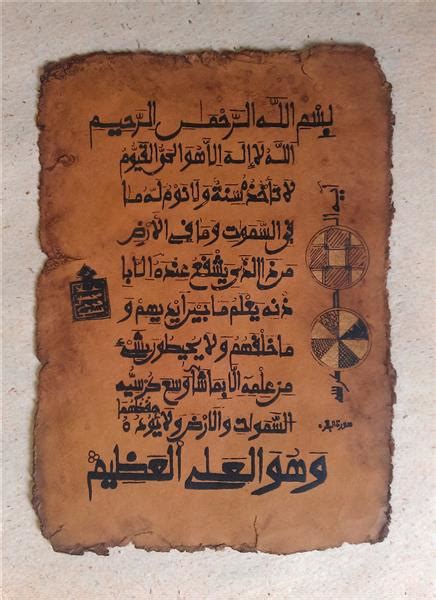 بِسْمِ اللَّه الرَّحْمٰنِ الرَّحِيمِ
اللَّهُ لَا إِلَهَ إِلَّا هُوَ الْحَيُّ الْقَيُّومُ
لَا تَأْخُذُهُ سِنَةٌ وَلَا نَوْمٌ لَهُ مَا
فِي السَّمٰوٰتِ وَمَا فِي الْأَرْضِ
مَن ذَا الَّذِي يَشْفَعُ عِنْدَهُ إِلَّا بِإ
ذْنِهِ يَعْلَمُ مَا بَيْنَ أَيْدِيهِمْ وَ
مَا خَلْفَهُمْ وَلَا يُحِيطُونَ بِشَيْءٍ
مِنْ عِلْمِهِ إِلَّا بِمَا شَاءَ وَسِعَ كُرْسِيُّهُ
السَّمٰوٰتِ وَالْأَرْضَ وَلَا يَؤُدُهُ حِفْظُهُمَا
وَهُوَ الْعَلِيُّ الْعَظِيمُ
آية الكرسي
سورة البقرة